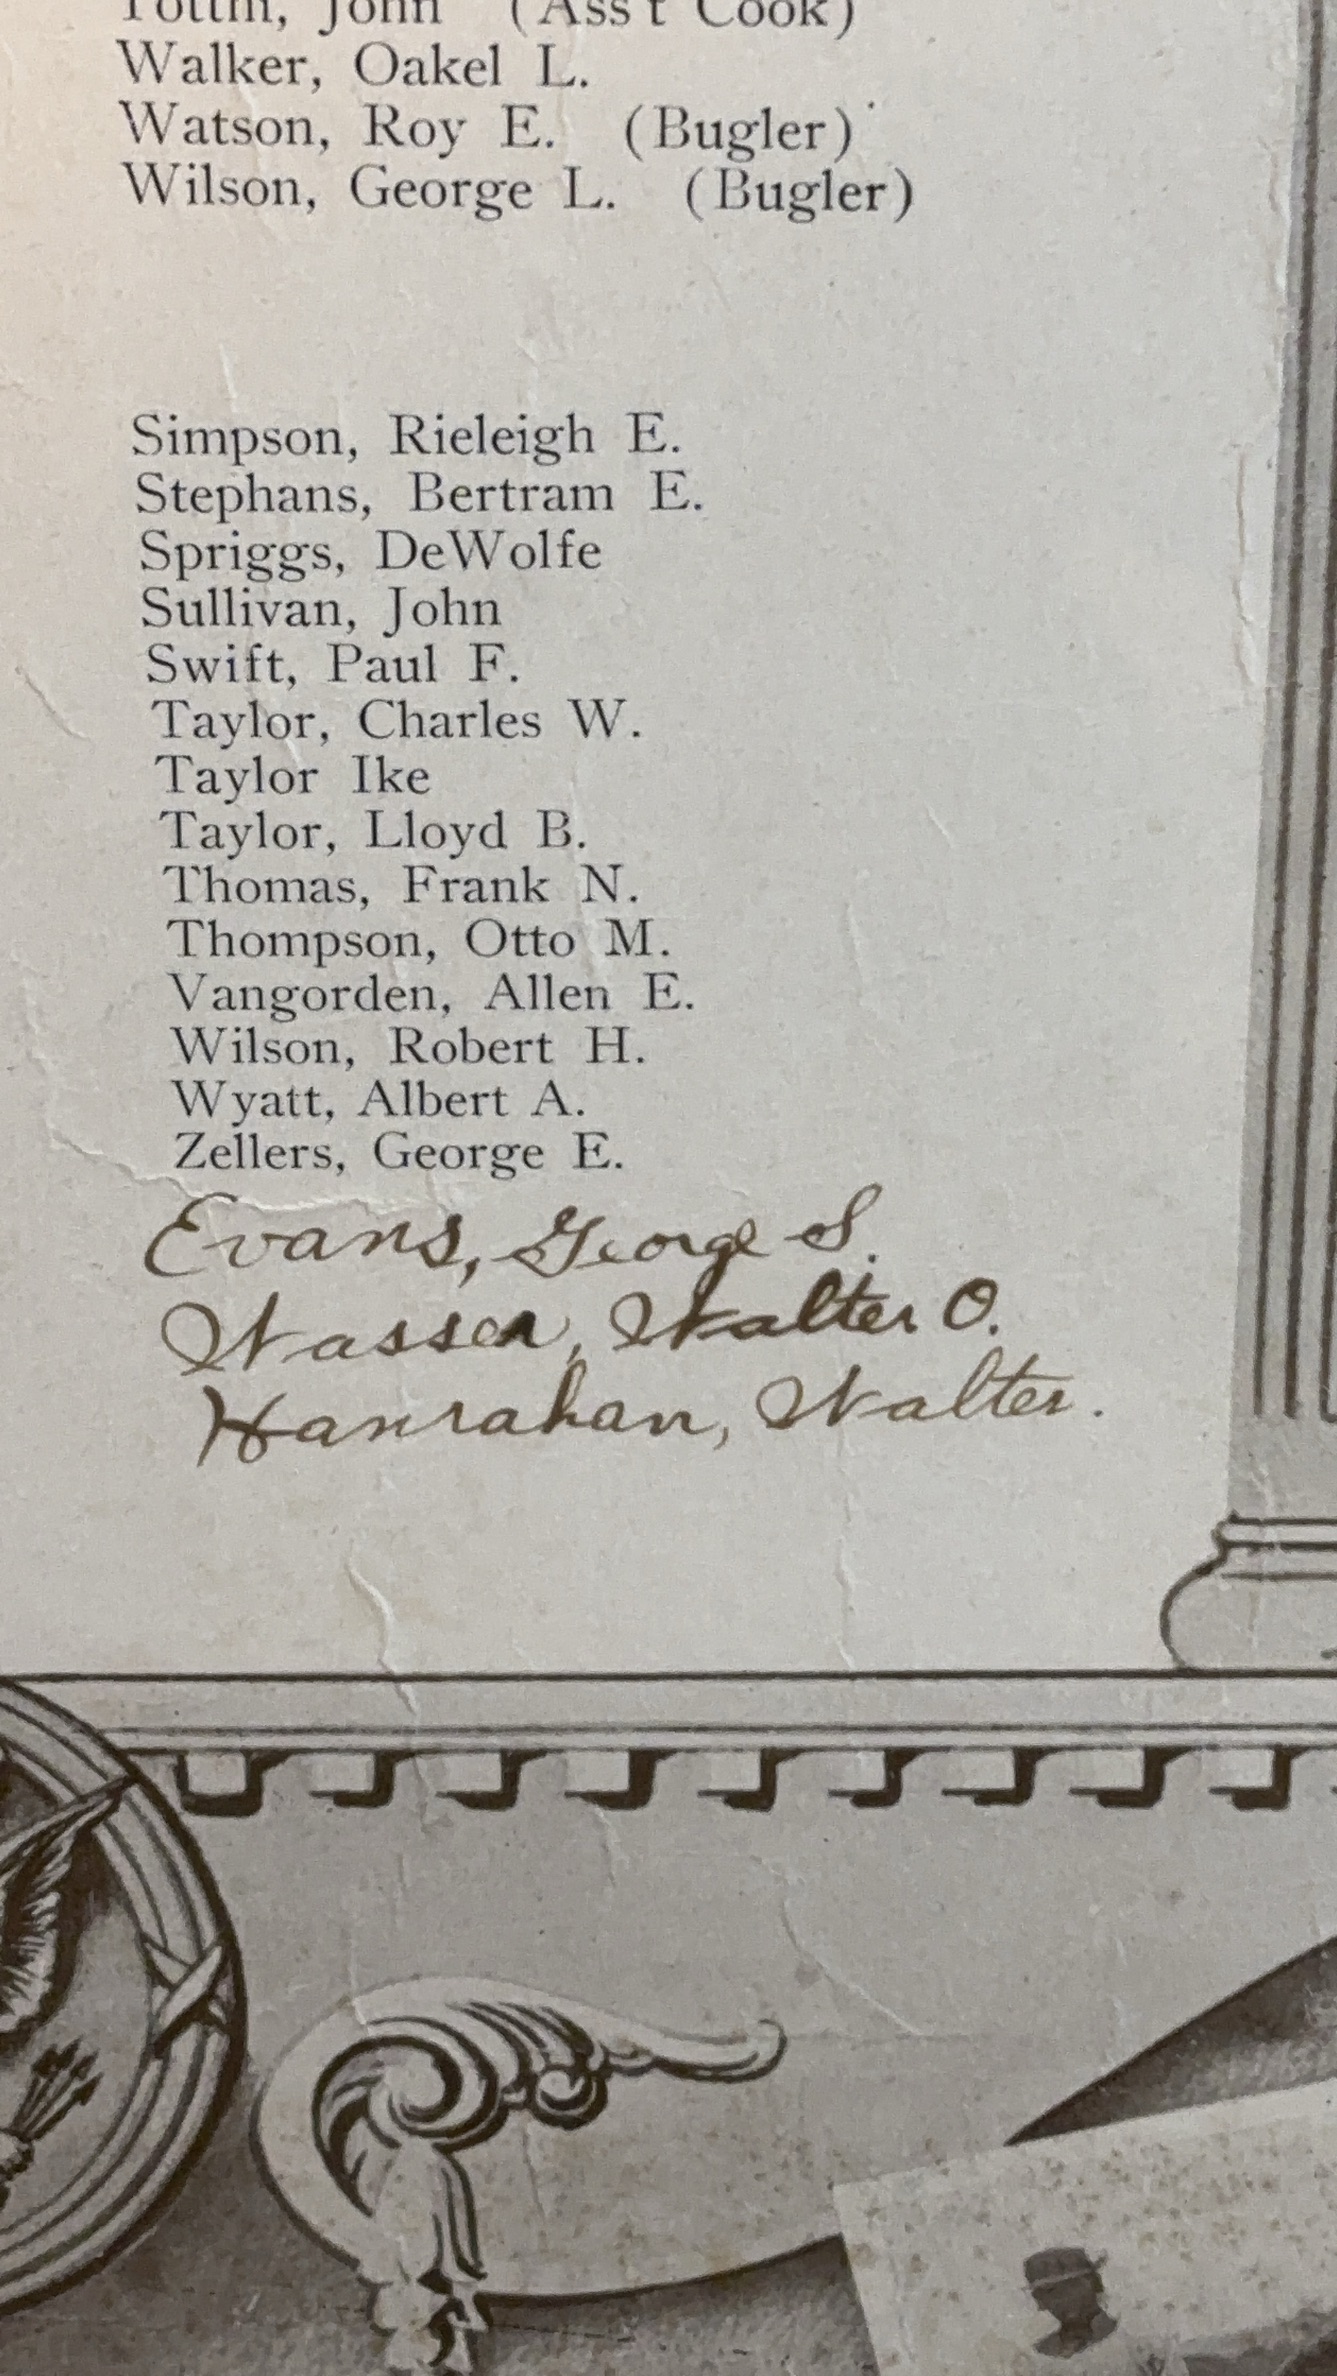 Tottin, John (Ass't Cook)
Walker, Oakel L.
Watson, Roy E. (Bugler)
Wilson, George L. (Bugler)
Simpson, Rieleigh E.
Stephans, Bertram E.
Spriggs, DeWolfe
Sullivan, John
Swift, Paul F.
Taylor, Charles W.
Taylor Ike
Taylor, Lloyd B.
Thomas, Frank N.
Thompson, Otto M.
Vangorden, Allen E.
Wilson, Robert H.
Wyatt, Albert A.
Zellers, George E.
Evans, George S.
Wasser, Walter O.
Hanrahan, Walter.